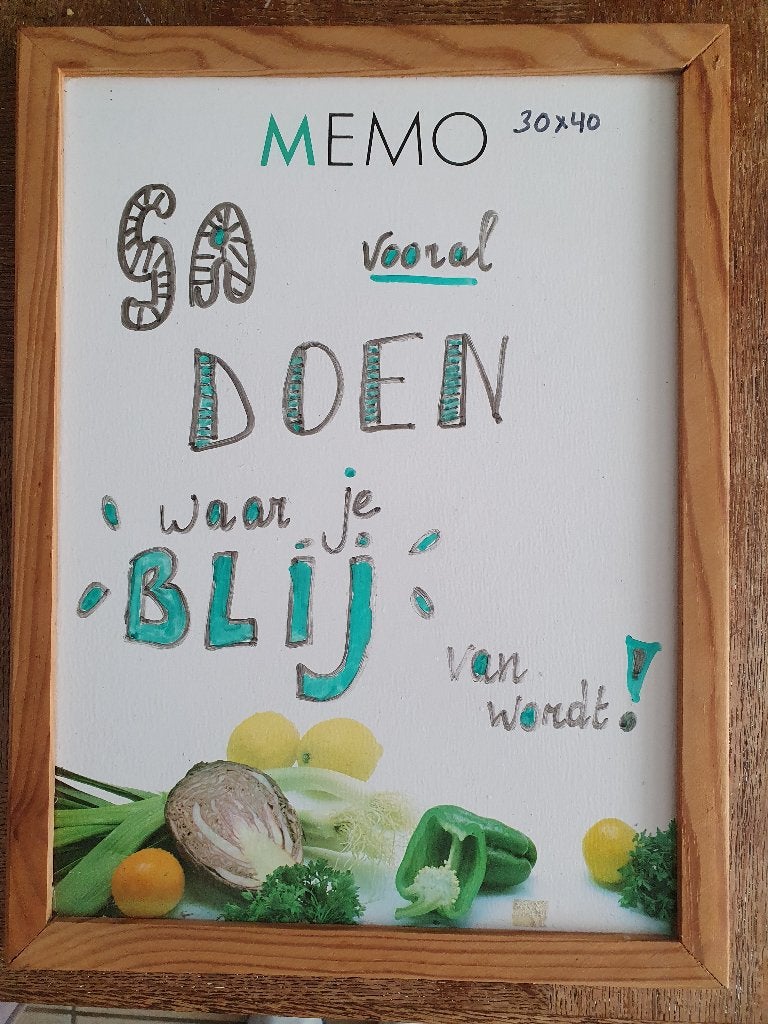 MEMO 30x40
GA vooral
DOEN
waar je
BLIJ
van
wordt!